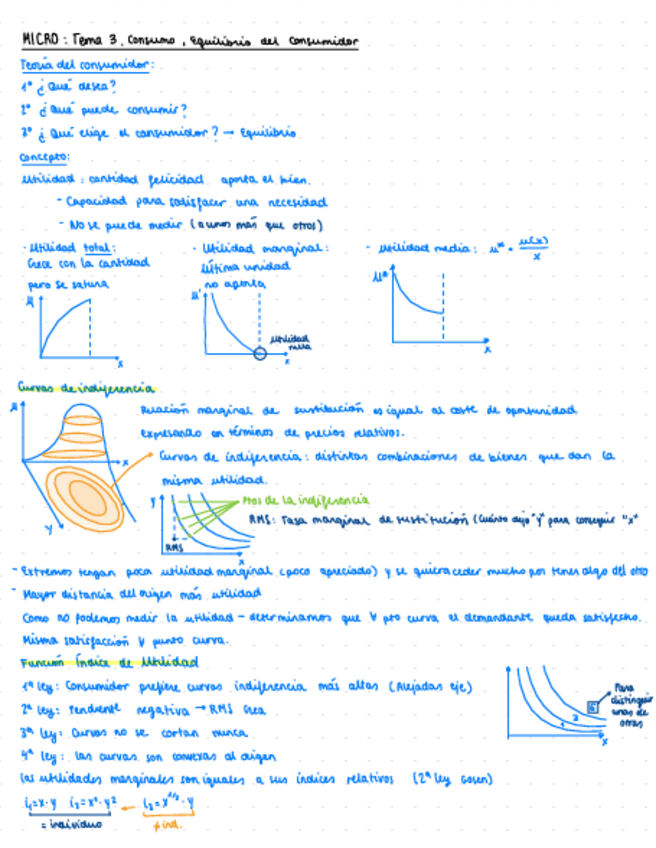 MICRO: Tema 3. Consumo, Equilibrio del consumidor
Teoría del consumidor:
1º ¿Qué desea?
2º ¿Qué puede consumir?
3º ¿Qué elige el consumidor? → Equilibrio
Concepto:
Utilidad: cantidad felicidad aporta el bien.
- Capacidad para satisfacer una necesidad
- No se puede medir (a unos más que otros)
- Utilidad total:
Crece con la cantidad
pero se satura
x
- Utilidad marginal:
última unidad
no aporta
utilidad
nula
x
- Utilidad media: u* = u(x)/x
x
Curvas de indiferencia
x
y
Relación marginal de sustitución es igual al coste de oportunidad
expresando en términos de precios relativos.
Curvas de indiferencia: distintas combinaciones de bienes que dan la
misma utilidad.
y
Ptos de la indiferencia
RMS: Tasa marginal de sustitución (Cuánto dejo "y" para conseguir "x"
RMS
x
- Extremos tengan poca utilidad marginal (poco apreciado) y se quiera ceder mucho por tener algo del otro
- Mayor distancia del origen más utilidad
Como no podemos medir la utilidad - determinamos que ∀ pto curva el demandante queda satisfecho.
Misma satisfacción ∀ punto curva.
Función Índice de Utilidad
1ª ley: Consumidor prefiere curvas indiferencia más altas (Alejadas eje)
2ª ley: Pendiente negativa → RMS
3ª ley: Curvas no se cortan nunca
4ª ley: las curvas son convexas al origen
x
Para
distinguir
unas de
otras
las utilidades marginales son iguales a sus índices relativos (2ª ley Gosen)
i₁=x·y i₂=x²·y² i₃=x^1/2·y
= individuo
≠ ind.